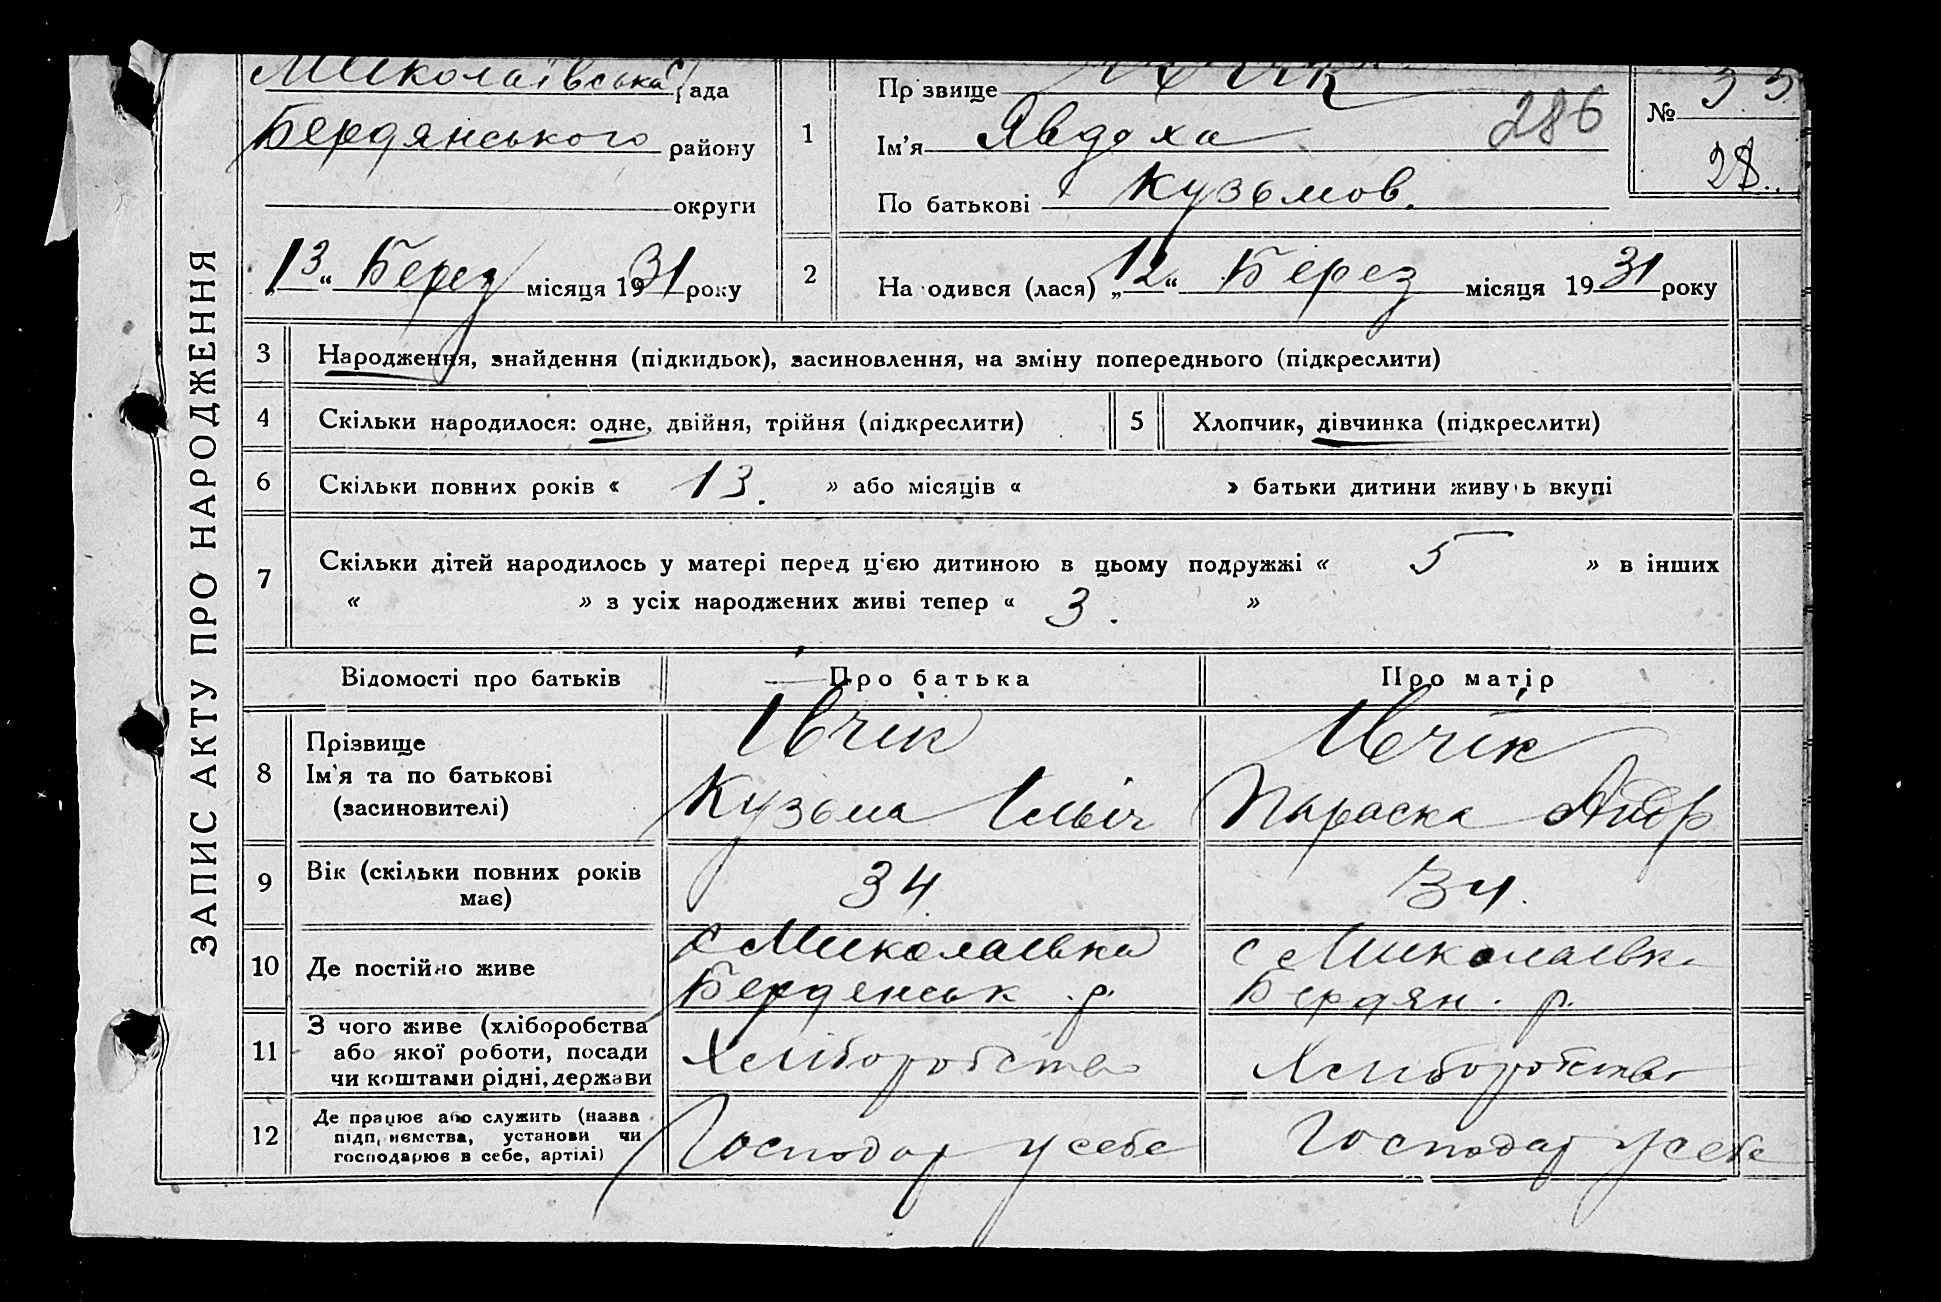 ЗАПИС АКТУ ПРО НАРОДЖЕННЯ
Миколаївська рада
Бердянського району
округи
„13“ Берез місяця 1931 року
1
Прізвище
Ім'я Явдоха
286
По батькові Кузьмов.
№ 33
28..
2
Народився (лася) „12“ Берез місяця 1931 року
3 Народження, знайдення (підкидьок), засиновлення, на зміну попереднього (підкреслити)
4 Скільки народилося: одне, двійня, трійня (підкреслити)
5 Хлопчик, дівчинка (підкреслити)
6 Скільки повних років « 13. » або місяців « » батьки дитини живуть вкупі
7 Скільки дітей народилось у матері перед цією дитиною в цьому подружжі « 5 » в інших
« » з усіх народжених живі тепер « 3. »
Відомості про батьків Про батька Про матір
8 Прізвище
Ім'я та по батькові
(засиновителі)
Івчік
Кузьма Ільіч
Івчік
Параска Андр
9 Вік (скільки повних років
має)
34
34.
10 Де постійно живе
с Миколаівка
Бердянськ р.
с Миколаівка
Бердян. р.
11 З чого живе (хліборобства
або якої роботи, посади
чи коштами рідні, держави
Хліборобство
Хліборобство
12 Де працює або служить (назва
підприємства, установи чи
господарює в себе, артілі)
Господар у себе
Господар у себе